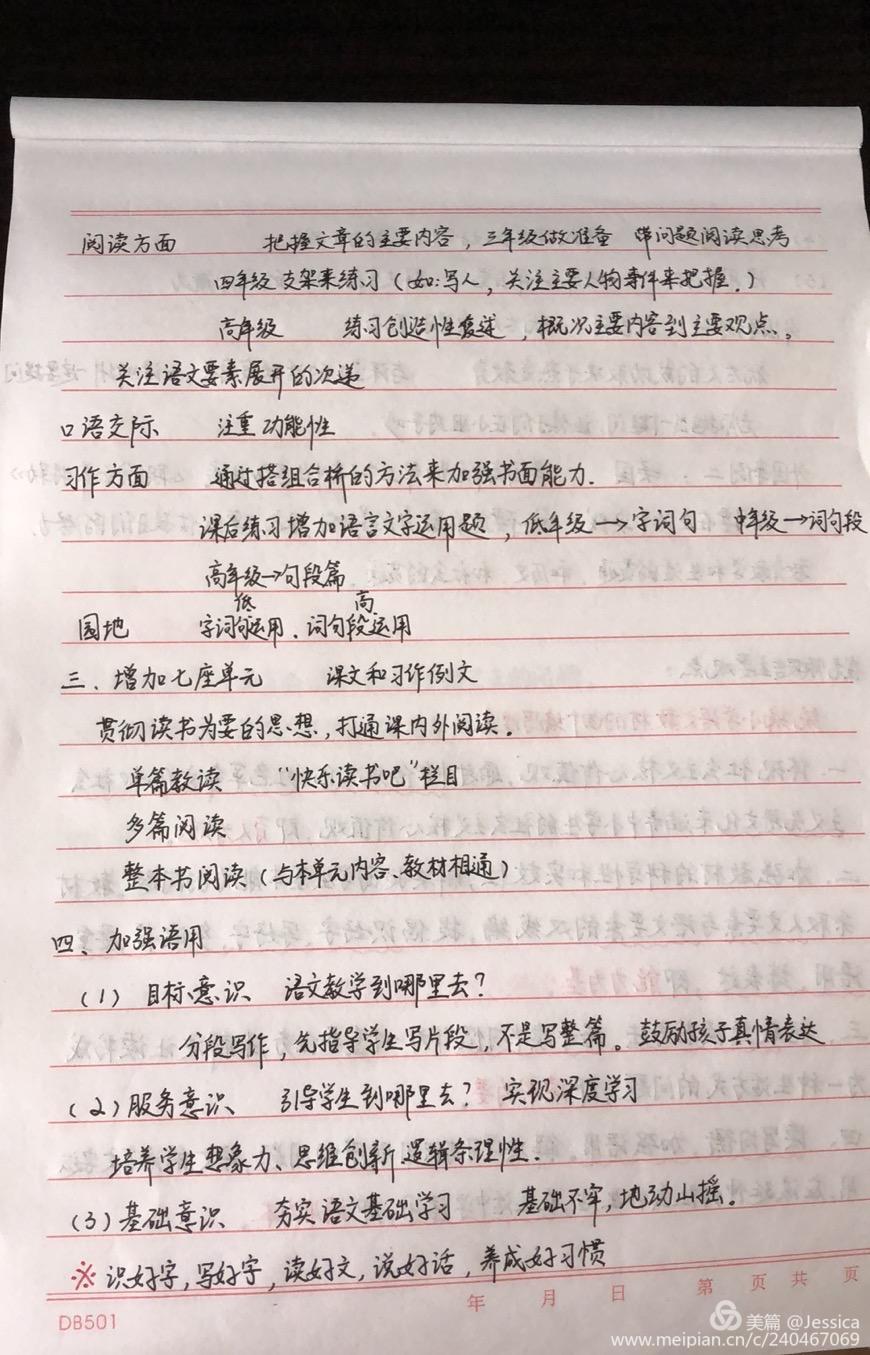 阅读方面 把握文章的主要内容，三年级做准备 带问题阅读思考
四年级 支架来练习（如：写人，关注主要人物事件来把握．）
高年级 练习创造性复述，概况主要内容到主要观点。
关注语文要素展开的次递
口语交际 注重功能性
习作方面 通过搭组合桥的方法来加强书面能力．
课后练习增加语言文字运用题，低年级→字词句 中年级→词句段
高年级→句段篇
低 高
园地 字词句运用．词句段运用
三、增加七座单元 课文和习作例文
贯彻读书为要的思想，打通课内外阅读。
单篇教读 “快乐读书吧”栏目
多篇阅读
整本书阅读（与本单元内容、教材相通）
四、加强语用
（1）目标意识 语文教学到哪里去？
分段写作，先指导学生写片段，不是写整篇。鼓励孩子真情表达
（2）服务意识 引导学生到哪里去？ 实现深度学习
培养学生想象力、思维创新 逻辑条理性．
（3）基础意识 夯实语文基础学习 基础不牢，地动山摇。
※ 识好字，写好字，读好文，说好话，养成好习惯
年 月 日 第 页 共 页
DB501
美篇 @Jessica
www.meipian.cn/c/240467069